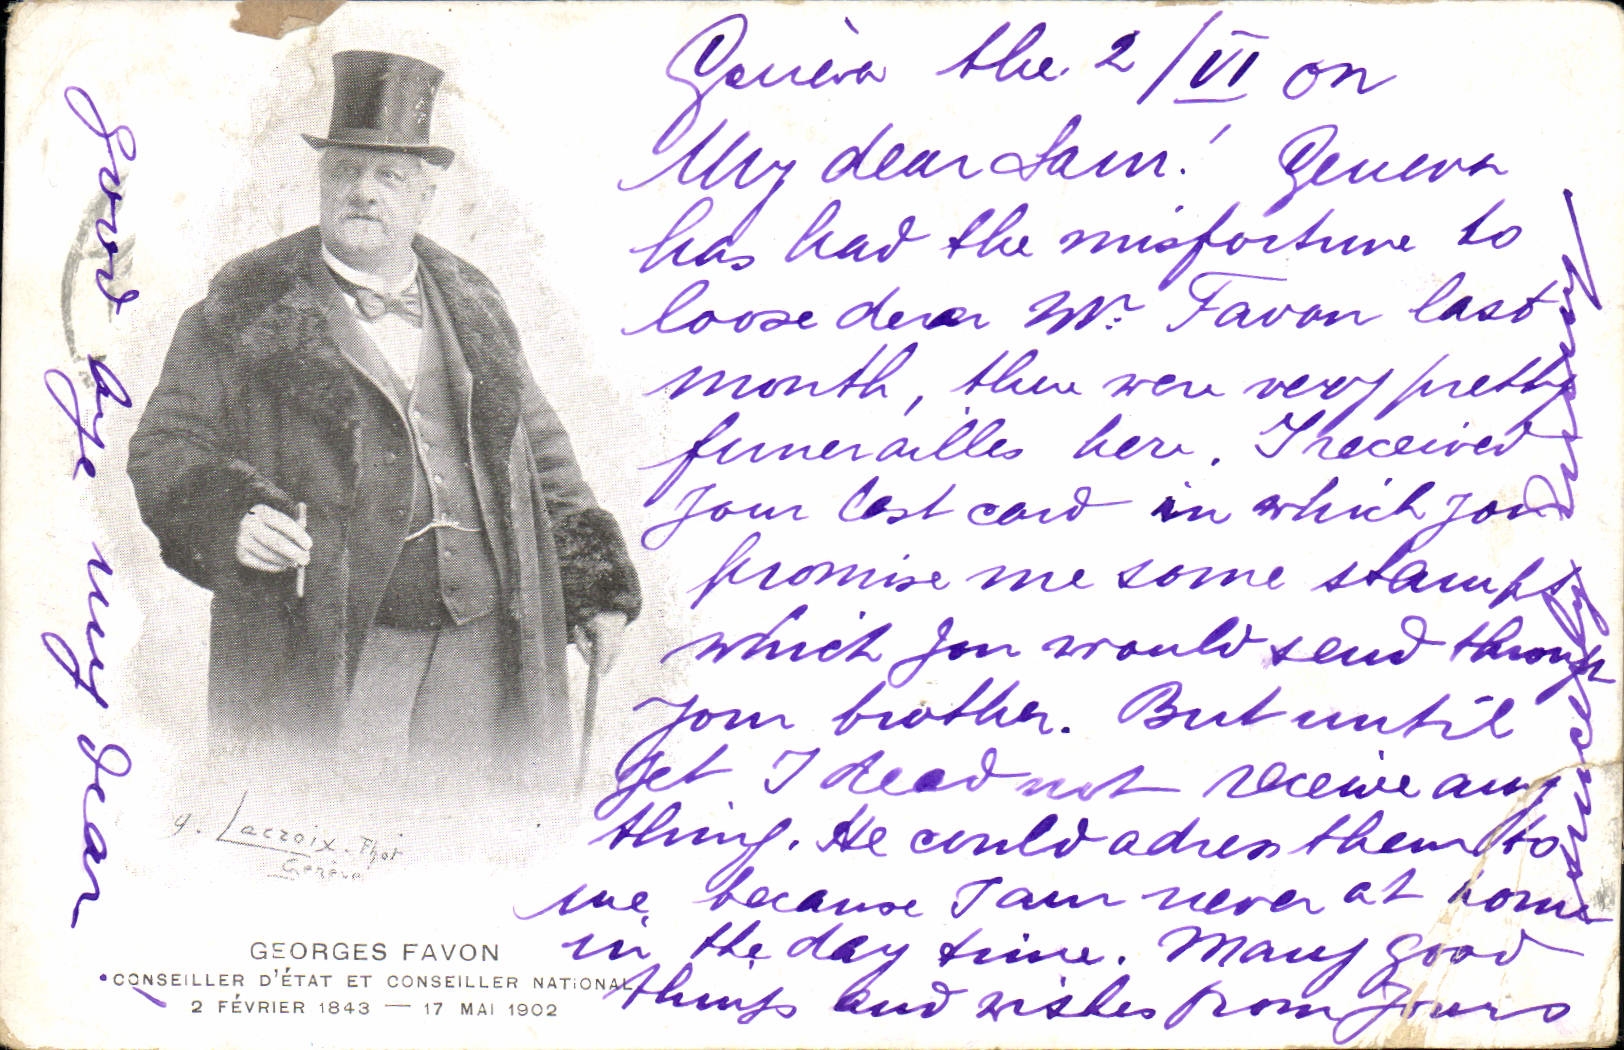 Genèva the 2/VI 02
My dear Sam! Geneva
has had the misfortune to
loose dear Mr. Favon last
month, there were very pretty
funerailles here. I received
your last card in which you
promise me some stamps
which you would send through
your brother. But until
yet I dead not receive any
thing. He could adress them to
me, because I am never at home
in the day time. Many good
things and wishes from yours
sincerely
Good bye my dear
G. Lacroix - Phot
Genève
GEORGES FAVON
CONSEILLER D'ÉTAT ET CONSEILLER NATIONAL
2 FÉVRIER 1843 — 17 MAI 1902